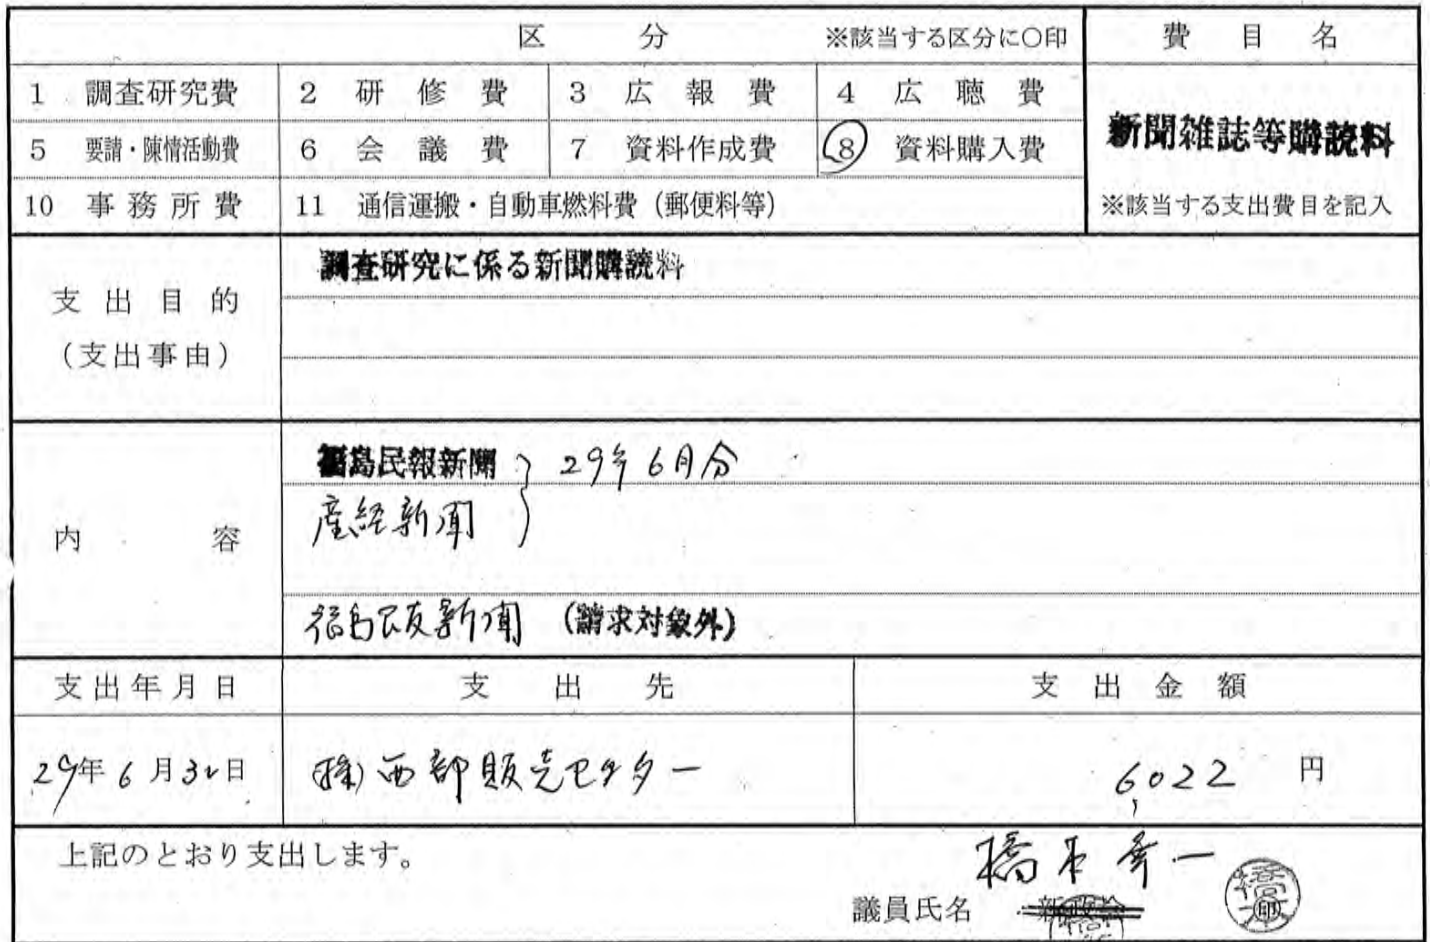 区 分 ※該当する区分に○印 費 目 名
1 調査研究費 2 研 修 費 3 広 報 費 4 広 聴 費
5 要請・陳情活動費 6 会 議 費 7 資料作成費 8 資料購入費
新聞雑誌等購読料
10 事務所費 11 通信運搬・自動車燃料費（郵便料等）
※該当する支出費目を記入
支 出 目 的
（支出事由）
調査研究に係る新聞購読料
内 容
福島民報新聞 29年6月分
産経新聞
福島民友新聞 (請求対象外)
支出年月日 支 出 先 支 出 金 額
29年6月30日 (株)西部販売センター 6,022 円
上記のとおり支出します。
橋本幸一
議員氏名 新政会